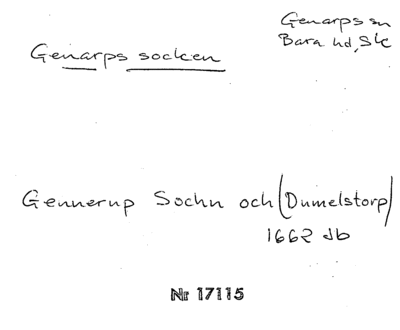 Genarps socken
Genarps sn
Bara hd, Sk
Gennerup Sochn och (Dumelstorp)
1662 db
Nr 17115